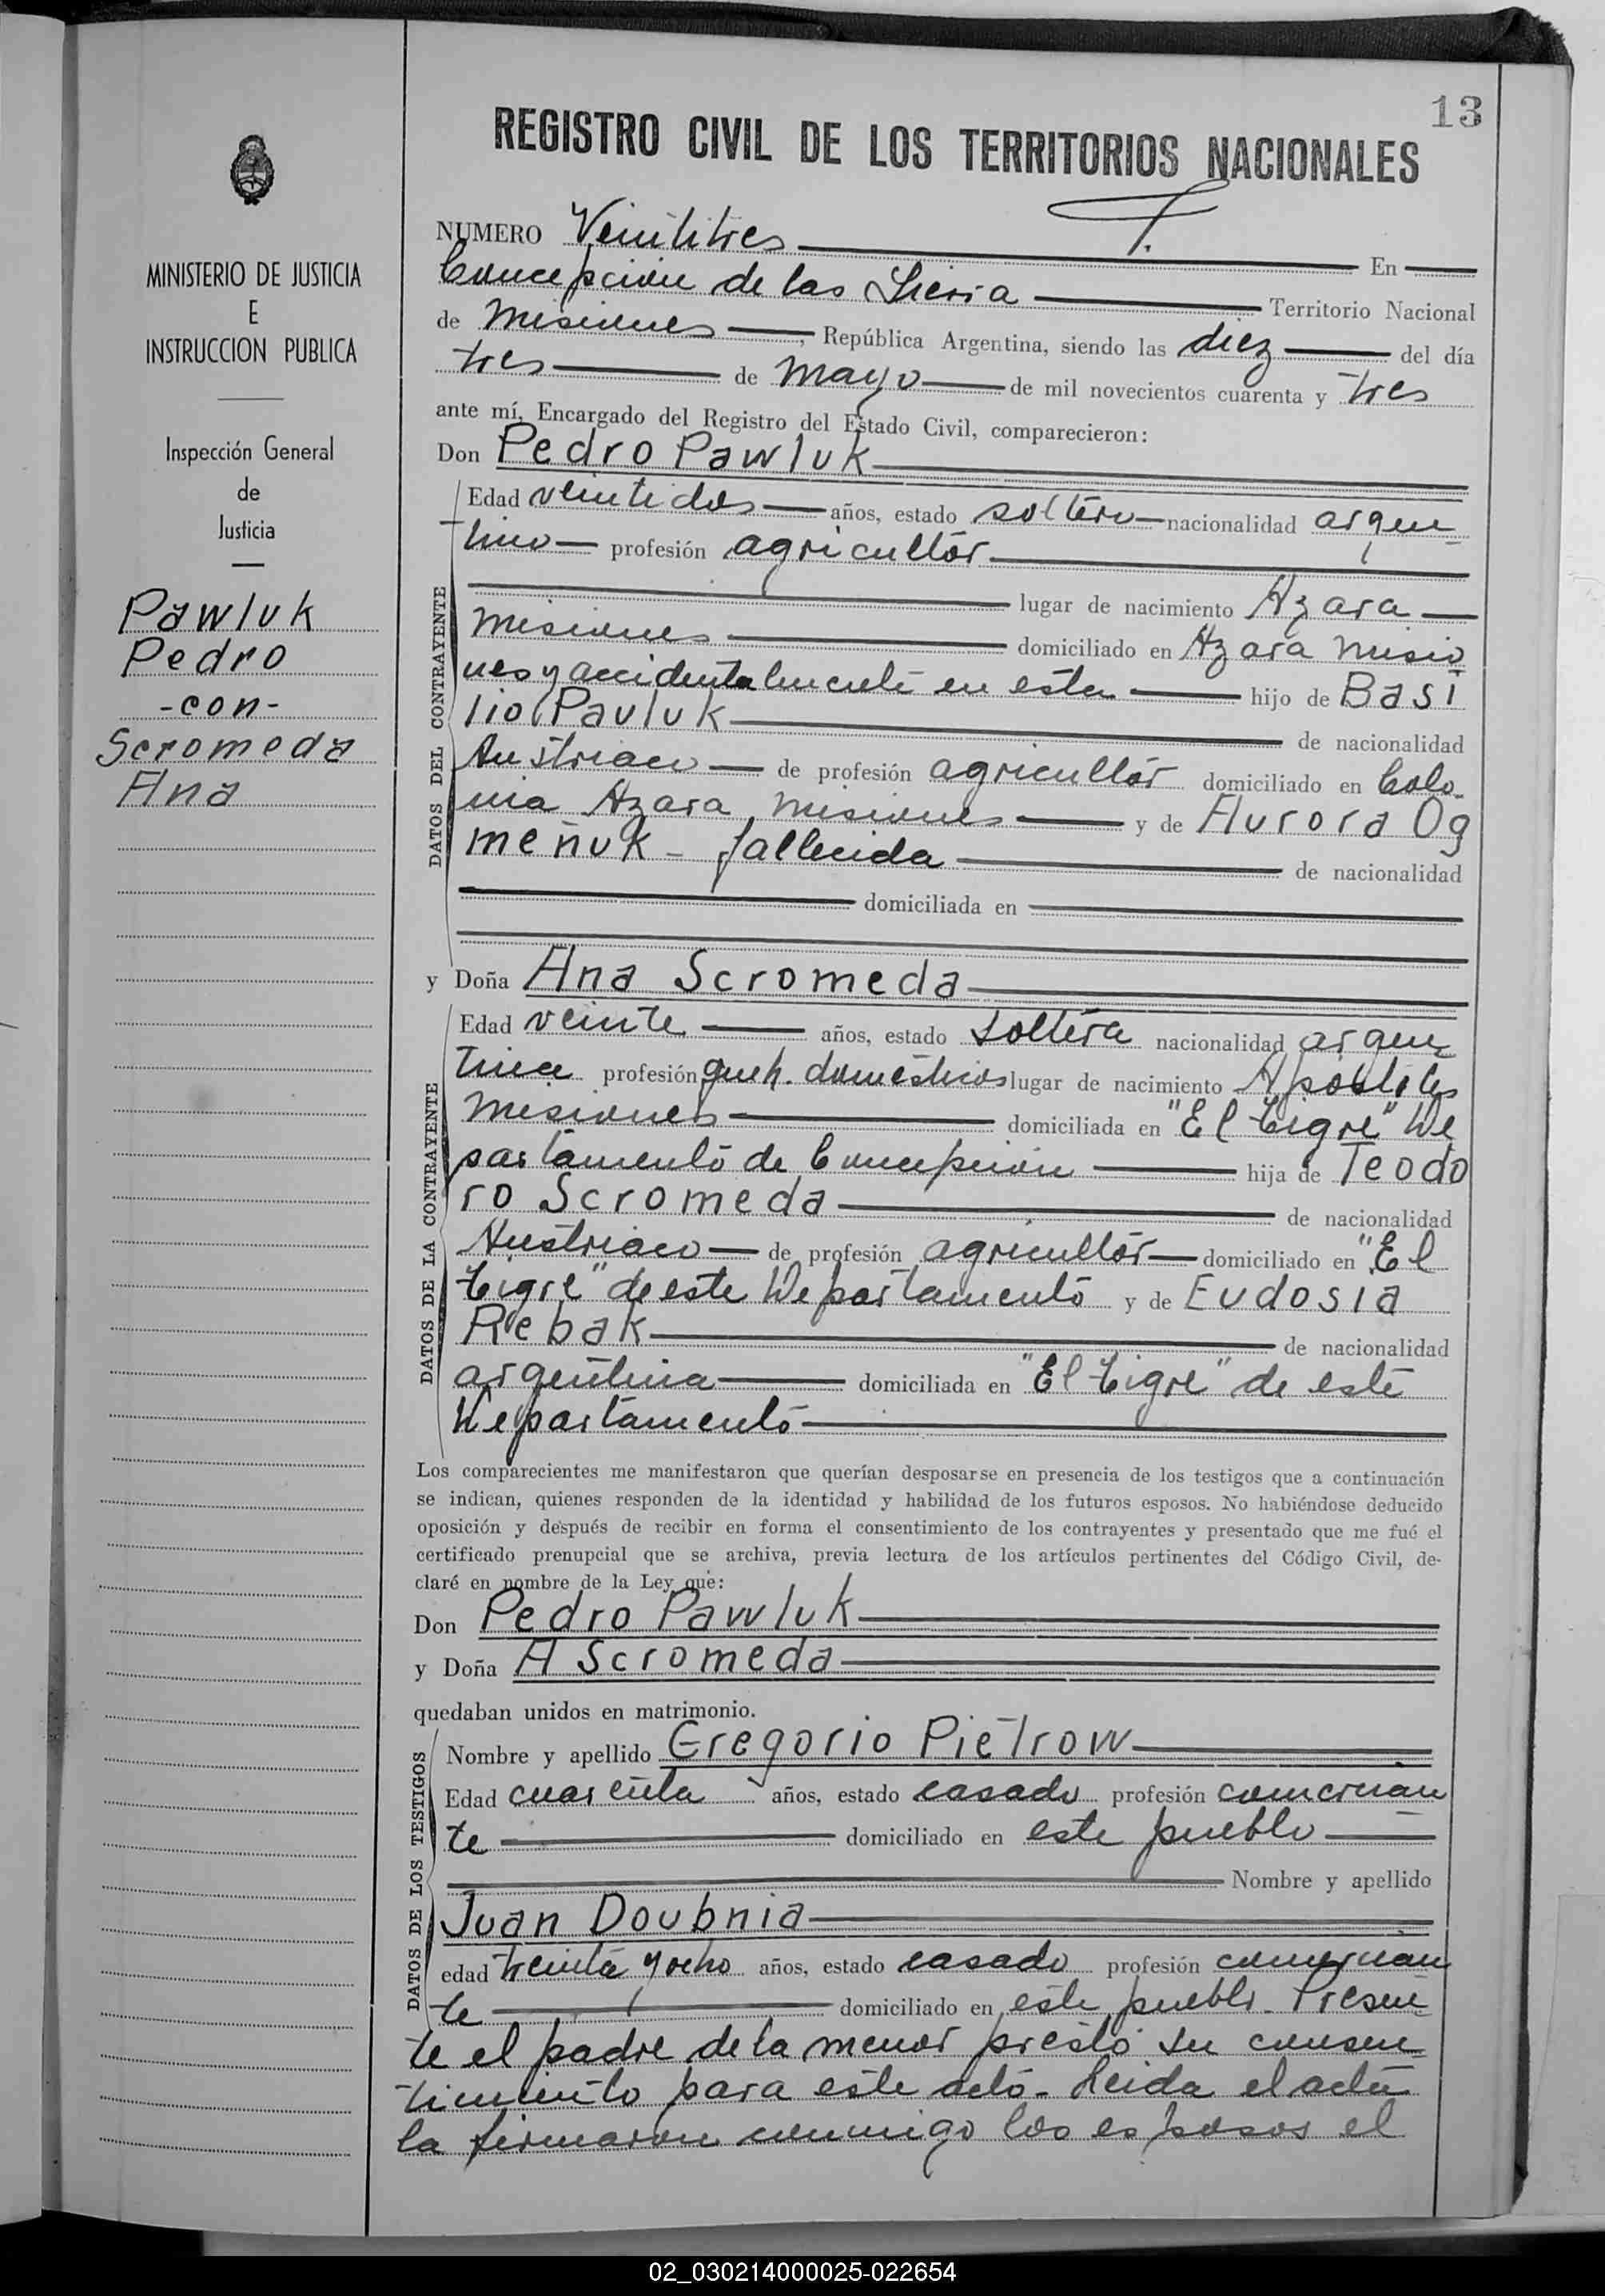 13
REGISTRO CIVIL DE LOS TERRITORIOS NACIONALES
MINISTERIO DE JUSTICIA
E
INSTRUCCION PUBLICA
Inspección General
de
Justicia
Pawluk
Pedro
-con-
Scromeda
Ana
NUMERO Veintitres En
Concepción de las Sierra Territorio Nacional
de Misiones, República Argentina, siendo las diez del día
tres de mayo de mil novecientos cuarenta y tres
ante mí, Encargado del Registro del Estado Civil, comparecieron:
Don Pedro Pawluk
DATOS DEL CONTRAYENTE
Edad veintidos años, estado soltero nacionalidad argen
tino profesión agricultor
lugar de nacimiento Azara
Misiones domiciliado en Azara Misio
nes y accidentalmente en esta hijo de Basi
lio Pavluk de nacionalidad
Austriaco de profesión agricultor domiciliado en Colo
nia Azara Misiones y de Aurora Og
meñuk - fallecida de nacionalidad
domiciliada en
y Doña Ana Scromeda
DATOS DE LA CONTRAYENTE
Edad veinte años, estado soltera nacionalidad argen
tina profesión queh. domésticos lugar de nacimiento Apostoles
Misiones domiciliada en "El Tigre" De
partamento de Concepción hija de Teodo
ro Scromeda de nacionalidad
Austriaco de profesión agricultor domiciliado en "El
Tigre" de este Departamento y de Eudosia
Rebak de nacionalidad
argentina domiciliada en "El Tigre" de este
Departamento
Los comparecientes me manifestaron que querían desposarse en presencia de los testigos que a continuación
se indican, quienes responden de la identidad y habilidad de los futuros esposos. No habiéndose deducido
oposición y después de recibir en forma el consentimiento de los contrayentes y presentado que me fué el
certificado prenupcial que se archiva, previa lectura de los artículos pertinentes del Código Civil, de-
claré en nombre de la Ley que:
Don Pedro Pawluk
y Doña A Scromeda
quedaban unidos en matrimonio.
DATOS DE LOS TESTIGOS
Nombre y apellido Gregorio Pietrow
Edad cuarenta años, estado casado profesión comercian
te domiciliado en este pueblo
Nombre y apellido
Juan Doubnia
edad treinta y ocho años, estado casado profesión comercian
te domiciliado en este pueblo. Presen
te el padre de la menor prestó su consen
timiento para este acto. Leida el acta
la firmaron conmigo los esposos el
02_030214000025-022654